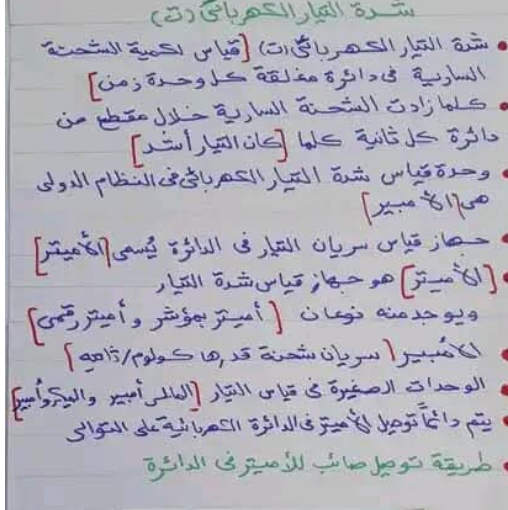 شدة التيار الكهربائي (ت)
شدة التيار الكهربائي (ت) [قياس لكمية الشحنة
السارية في دائرة مغلقة كل وحدة زمن]
كلما زادت الشحنة السارية خلال مقطع من
دائرة كل ثانية كلما [كان التيار أشد]
وحدة قياس شدة التيار الكهربائي في النظام الدولى
هى [الأمبير]
جهاز قياس سريان التيار في الدائرة يُسمى [الأميتر]
[الأميتر] هو جهاز قياس شدة التيار
ويوجد منه نوعان [أميتر بمؤشر وأميتر رقمى]
الأمبير [سريان شحنة قدرها كولوم/ثانيه]
الوحدات الصغيرة في قياس التيار [المللى أمبير والميكروأمبير]
يتم دائماً توصيل الأميتر في الدائرة الكهربائية على التوالى
طريقة توصيل صائب للأميتر في الدائرة